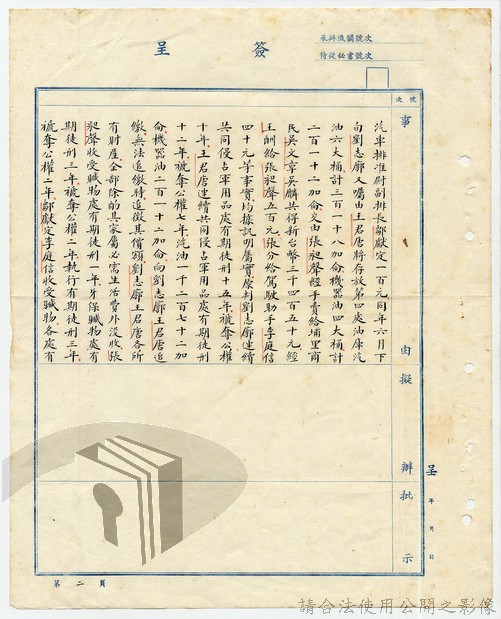 簽呈
承辦機關號次
侍從秘書號次
號次
事由擬辦批示
汽車排准尉副排長鄒獻定一百元同年六月下
旬劉志廓又囑由王君唐將存放第四處油庫汽
油六大桶計三百一十八加侖機器油四大桶計
二百一十二加侖交由張昶聲經手賣給埔里商
民吳文章吳麟共得新台幣三千四百五十元經
王酬給張昶聲五百元張分給駕駛助手李庭信
四十元等事實均據訊明屬實原判劉志廓連續
共同侵占軍用品處有期徒刑十五年褫奪公權
十年王君唐連續共同侵占軍用品處有期徒刑
十二年褫奪公權七年汽油一千二百七十二加
侖機器油二百一十二加侖向劉志廓王君唐追
繳無法追繳時追徵其價額劉志廓王君唐各所
有財產全部除酌其家屬必需生活費外沒收張
昶聲收受贓物處有期徒刑一年牙保贓物處有
期徒刑三年褫奪公權二年執行有期徒刑三年
褫奪公權二年鄒獻定李庭信收受贓物各處有
呈 年 月 日
第二頁
請合法使用公開之影像